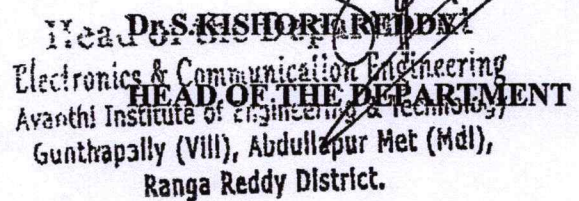 Dr.S.KISHORE REDDY
Head of the Department
Electronics & Communication Engineering
HEAD OF THE DEPARTMENT
Avanthi Institute of Engineering & Technology
Gunthapally (Vill), Abdullapur Met (Mdl),
Ranga Reddy District.